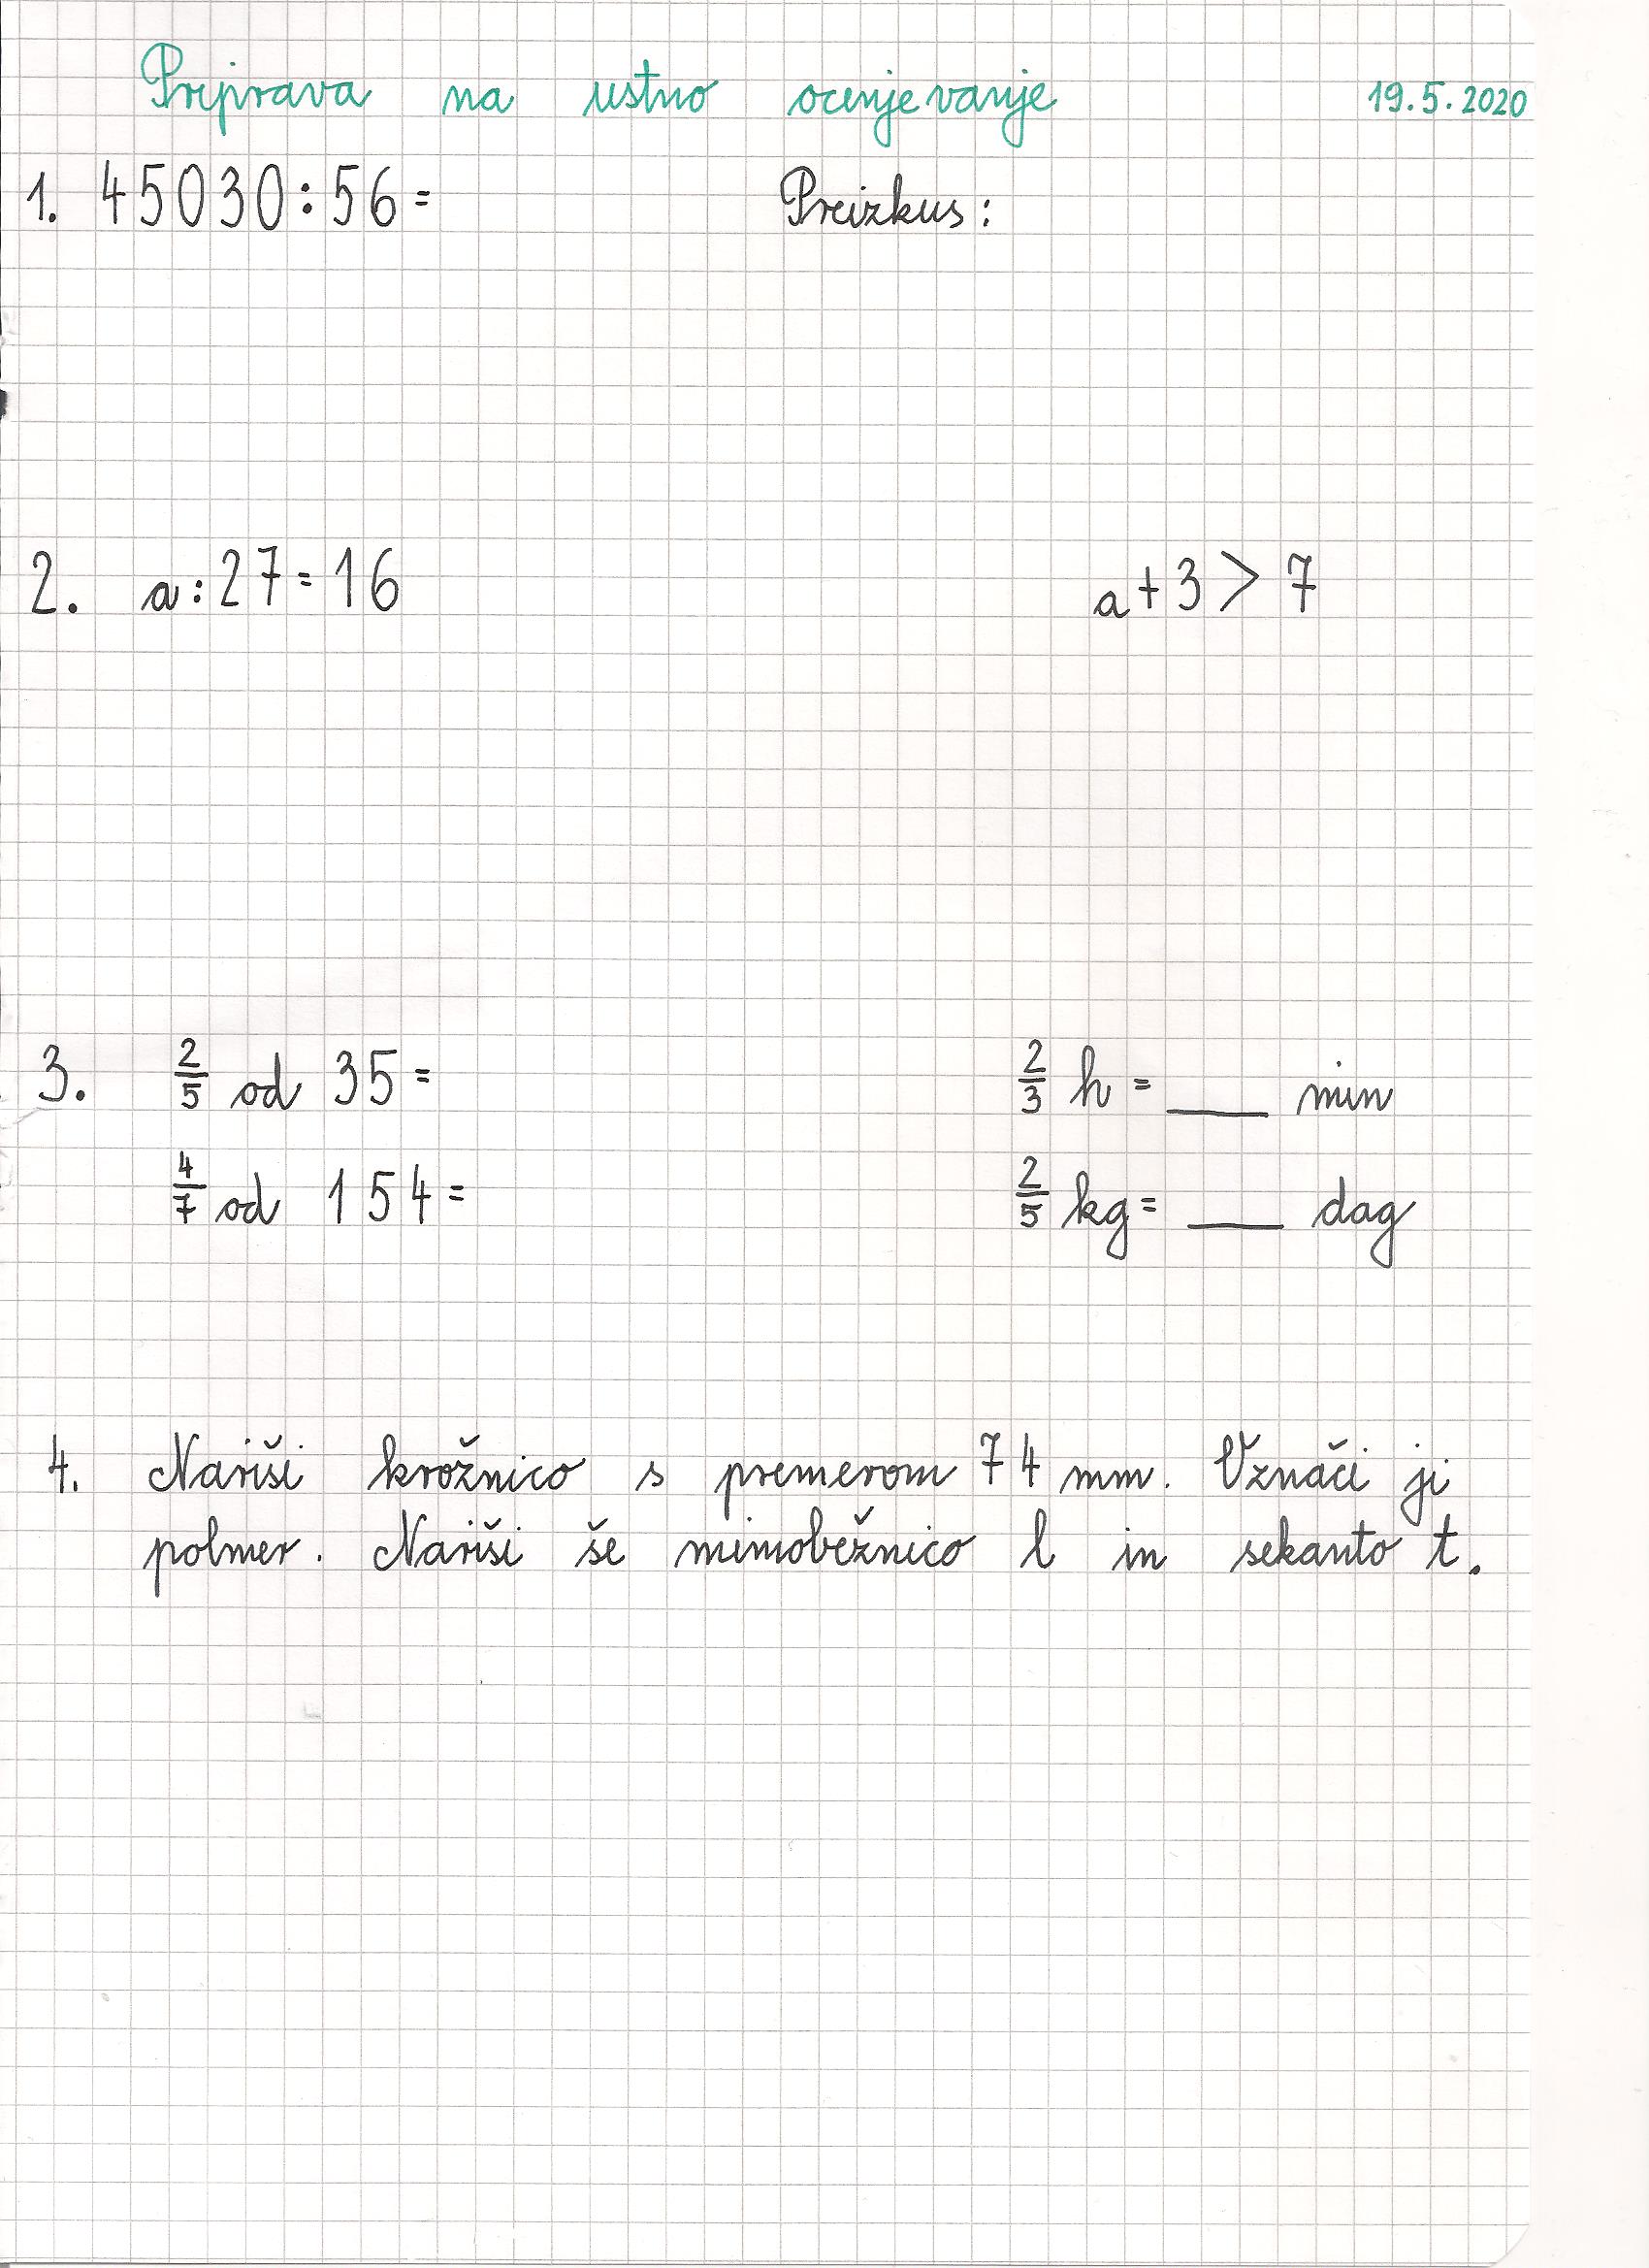 Priprava na ustno ocenjevanje 19.5.2020
1. 45030:56= Preizkus:
2. a:27=16 a+3>7
3. 2/5 od 35= 2/3 h=___ min
4/7 od 154= 2/5 kg=___ dag
4. Nariši krožnico s premerom 74 mm. Vznači ji
polmer. Nariši še mimobežnico l in sekanto t.